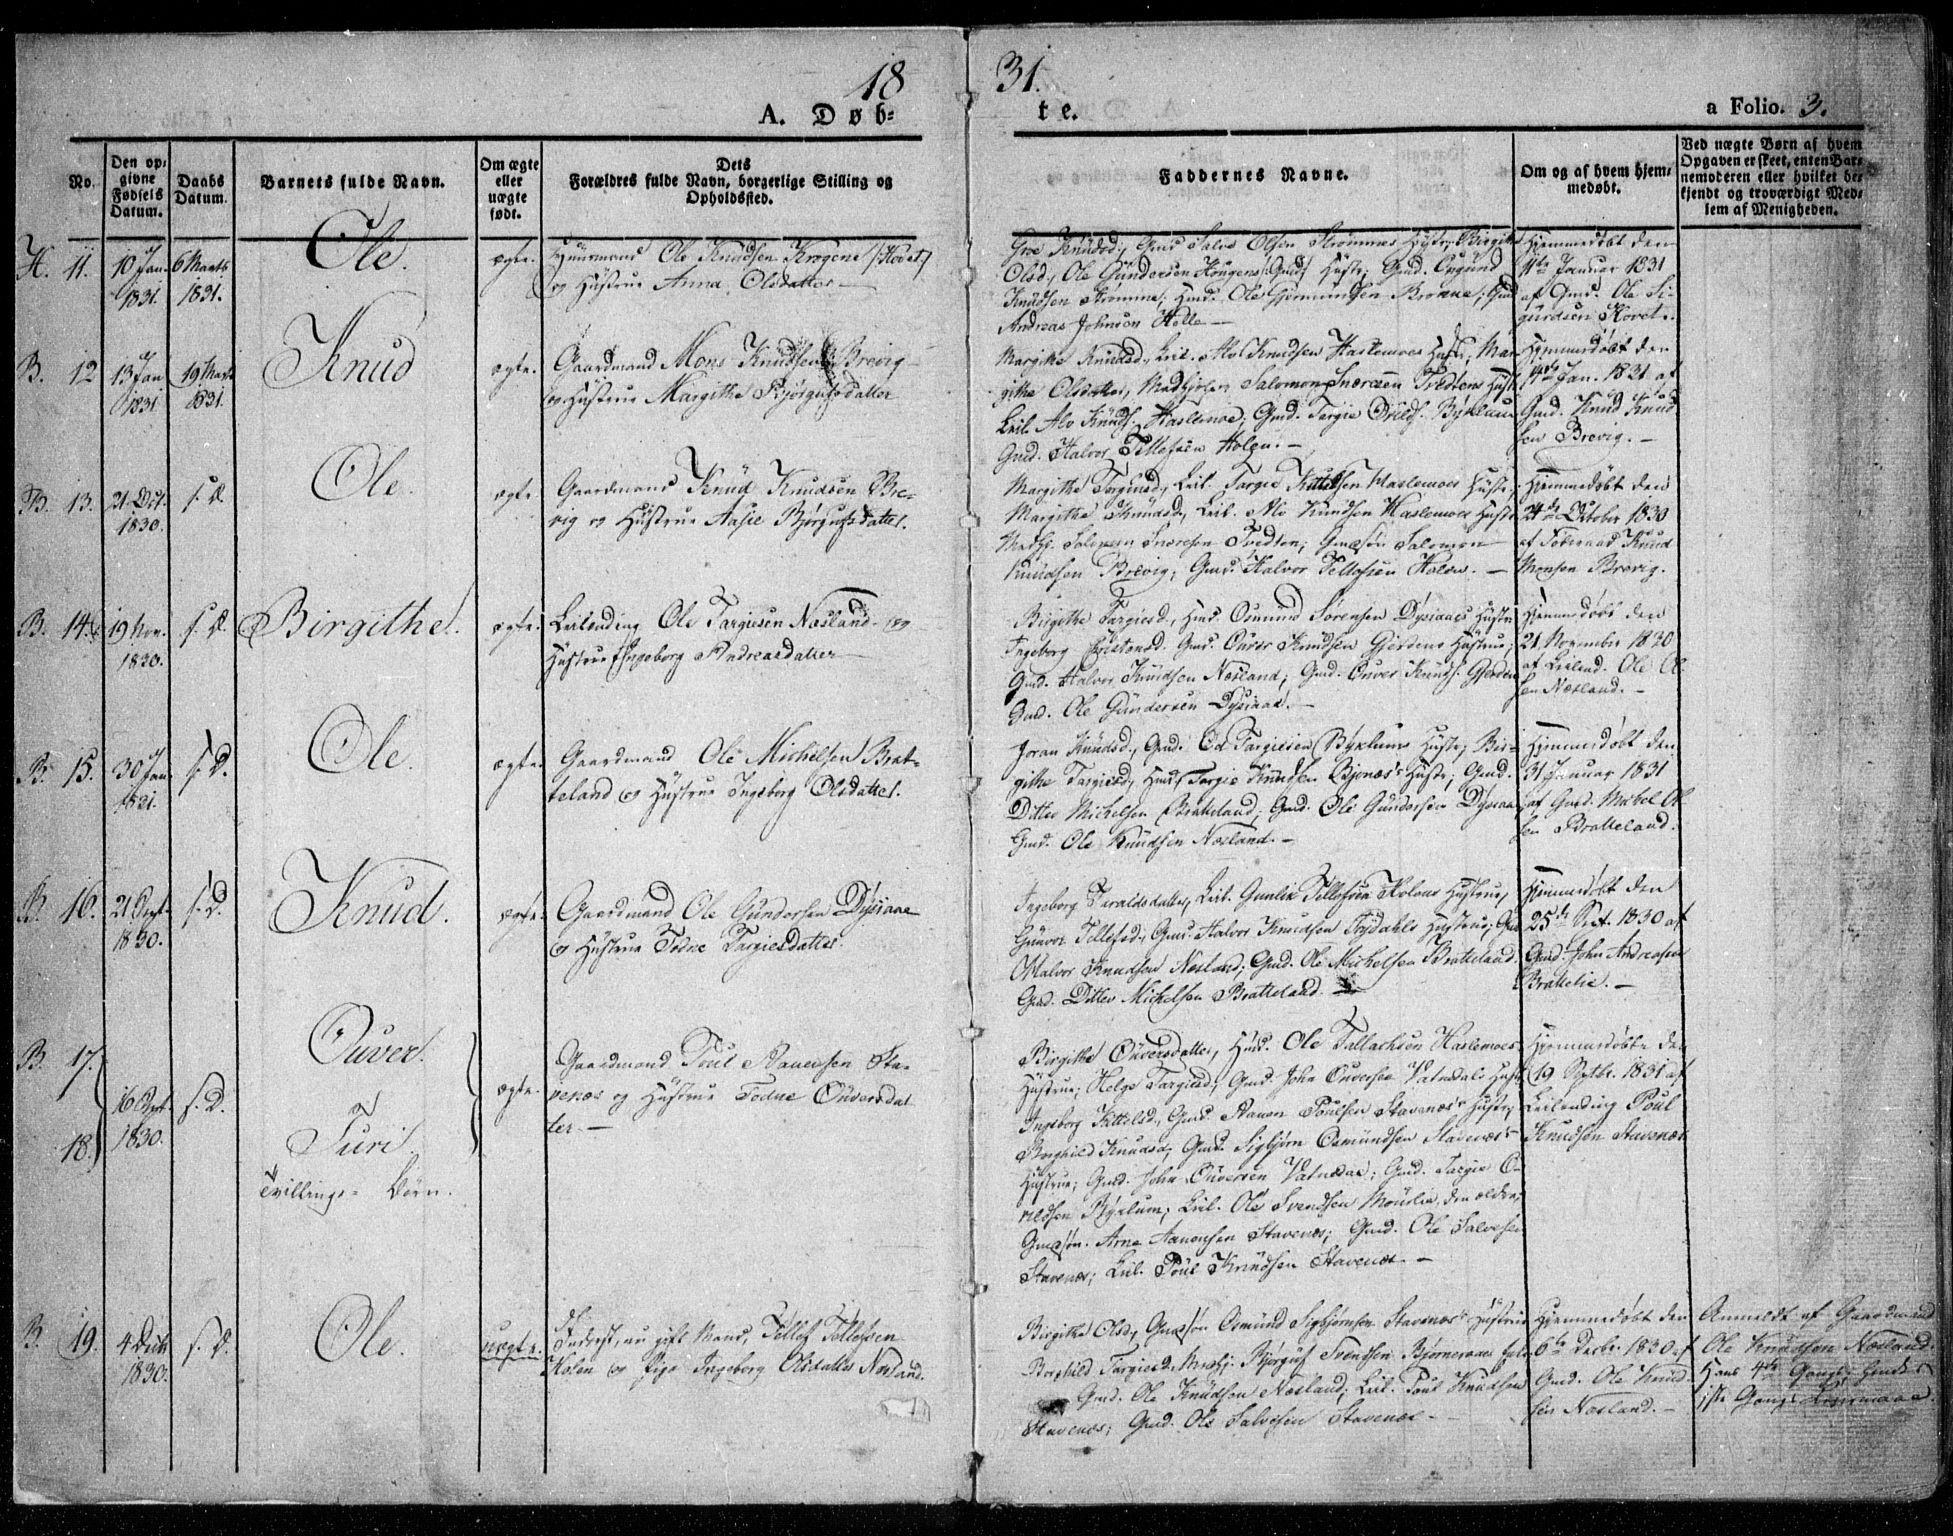 18 31.
A. Døb= te. a Folio. 3.
No.
Den op=
givne
Fødsels
Datum.
Daabs
Datum.
Barnets fulde Navn.
Om ægte
eller
uægte
født.
Dets
Forældres fulde Navn, borgerlige Stilling og
Opholdssted.
Faddernes Navne.
Om og af hvem hjem=
medøbt.
Ved uægte Børn af hvem
Opgaven er skeet, enten Bar=
nemoderen eller hvilket be=
kjendt og troværdigt Med=
lem af Menigheden.
H. 11. 10 Jan 1831. 6 Marts 1831.
Ole.
ægte.
Huusmand Ole Knudsen Krogene /:Hovet:/
og Hustrue Anna Olsdatter —
Groe Knudsd:, Gmd Salve Olsen Strømmes Hustr; Birgithe
Olsd., Ole Gundersen Hougens Hustr; Gmd.
Knudsen Strømme; Ole Gjermundsen Gmd
Andreas Johnson Helle —
Hjemmedøbt den
11te Januar 1831
af Gmd. Ole Si-
gurdsen Hovet.
B. 12 13 Jan 1831 19 Marts 1831.
Knud
ægte.
Gaardmand Mons Knudsen Brevig
og Hustrue Margithe Bjørgufsdatter
Margithe Knudsd., Leil. Alv Knudsen Haslemoes Hustr; Mar-
githe Olsdatter, Salomon Snaresen Tvedtens Hustr
Leil. Alv Knuds. Haslemoe; Gmd. Targie Byklum
Gmd. Halvor Tellefsen Holen. —
Hjemmedøbt den
14de Jan. 1831 af
Gmd. Knud Knud
sen Brevig. —
B. 13. 21. Oct. 1830. s. D.
Ole.
ægte.
Gaardmand Knud Knudsen Bre-
vig og Hustrue Aasie Bjørgufsdatter.
Margithe Targiesd., Leil. Targie Kittelsen Haslemoes Hustr;
Margithe Knudsd., Leil. Alv Knudsen Haslemoes Hustr
Salomon Snaresen Tvedten; Gmdsøn Salomon
Knudsen Brevig; Gmd. Halvor Tellefsen Holen. —
Hjemmedøbt den
24de Oktober 1830
af Føderaad Knud
Monsen Brevig.
B. 14. 19 Nov. 1830. s. D.
Birgithe.
ægte.
Leilending Ole Targiesen Næsland og
Hustrue Ingeborg Andreasdatter —
Birgithe Targiesd., Hmd. Osmund Sørensen Dysiaaes Hustr;
Ingeborg Gmd. Ouver Knudsen Gjerdens Hustrue;
Gmd. Halvor Knudsen Næsland; Gmd. Ouver Knuds. Gjerden
Gmd. Ole Gundersen Dysiaae. —
Hjemmedøbt den
21 November 1830
af Leilend. Ole Ol
sen Næsland. —
B. 15. 30 Jan 1831. s. D.
Ole.
ægte.
Gaardmand Ole Michelsen Brat-
teland og Hustrue Ingeborg Olsdatter.
Joran Knudsd., Gmd. Targiesen Byklums Hustr; Bir-
githe Targiesd., Hmd Targie Knudsen Bjones's Hustr; Gmd.
Ditlev Michelsen Bratteland; Gmd. Ole Gundersen Dysiaae
Gmd. Ole Knudsen Næsland. —
Hjemmedøbt den
31 Januar 1831
af Gmd. Michel Ol
sen Bratteland.
B. 16. 21 Sept. 1830. s. D.
Knud.
ægte.
Gaardmand Ole Gundersen Dysiaae
og Hustrue Todne Targiesdatter.
Ingeborg Taraldsdatter, Leil. Gunlik Tellefsen Holens Hustrue;
Gunvor Tellefsd., Gmd. Halvor Knudsen Hustrue; Gmd
Halvor Knudsen Næsland; Gmd. Ole Michelsen Bratteland
Gmd. Ditlev Michelsen Bratteland. —
Hjemmedøbt den
25de Sept. 1830 af
Gmd. John Andreasen
Brattelie. —
B. 17. 18. 16 Sept. 1830. s. D.
Ouver.
Turi.
Tvillinge= Børn.
ægte.
Gaardmand Poul Aanensen Sta-
venæs og Hustrue Todne Ouversdat
ter. —
Birgithe Ouversdatter, Hmd. Ole Tallachsen Haslemoes
Hustrue; Helge Targiesd., Gmd. John Ouversen Vatnedals Hustr
Ingeborg Kittelsd., Gmd. Aanen Poulsen Stavenæs's Hustr;
Borghild Knudsd, Gmd. Sigbjørn Osmundsen Stavenæs's
Hustrue; Gmd. John Ouversen Vatnedal; Gmd. Targie O-
Byklum; Leil. Ole Svendsen Mourlie, den ældre;
Gmdsøn. Arne Aanensen Stavenæs; Gmd. Ole Salvesen
Stavenæs; Leil. Poul Knudsen Stavenæs —
Hjemmedøbte den
19 Septbr. 1831 af
Leilending Poul
Knudsen Stavenæs
B. 19. 4 Decbr 1830. s. D.
Ole.
uægte.
Inderst, nu gift Mand, Tellef Tellefsen
Holen og Pige Ingeborg Olsdatter Næsland.
Birgithe Olsd., Gmdsøn Osmund Sigbjørnsen Stavenæs's Hustrue
Borghild Targiesd., Bjørguf Svendsen
Gmd. Ole Knudsen Næsland; Leil. Poul Knudsen
Stavenæs; Gmd. Ole Salvesen Stavenæs —
Hjemmedøbt den
6te Decbr. 1830 af
Gmd. Ole Knud-
sen Næsland. —
Anmeldt af Gaardmand
Ole Knudsen Næsland.
Hans 4de Gang; hendes
1ste Gangs Leiermaal.